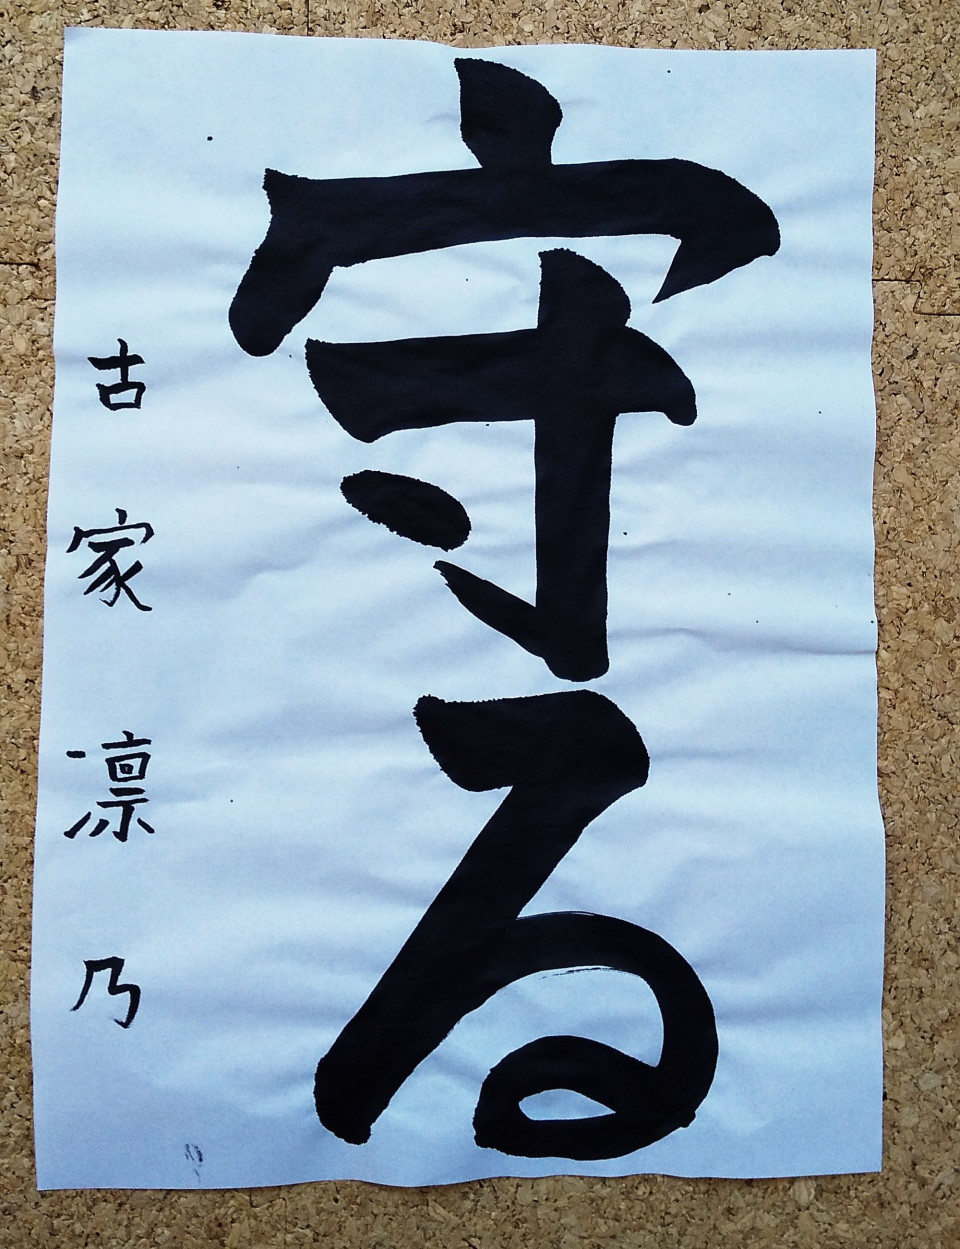 守る
古家凛乃